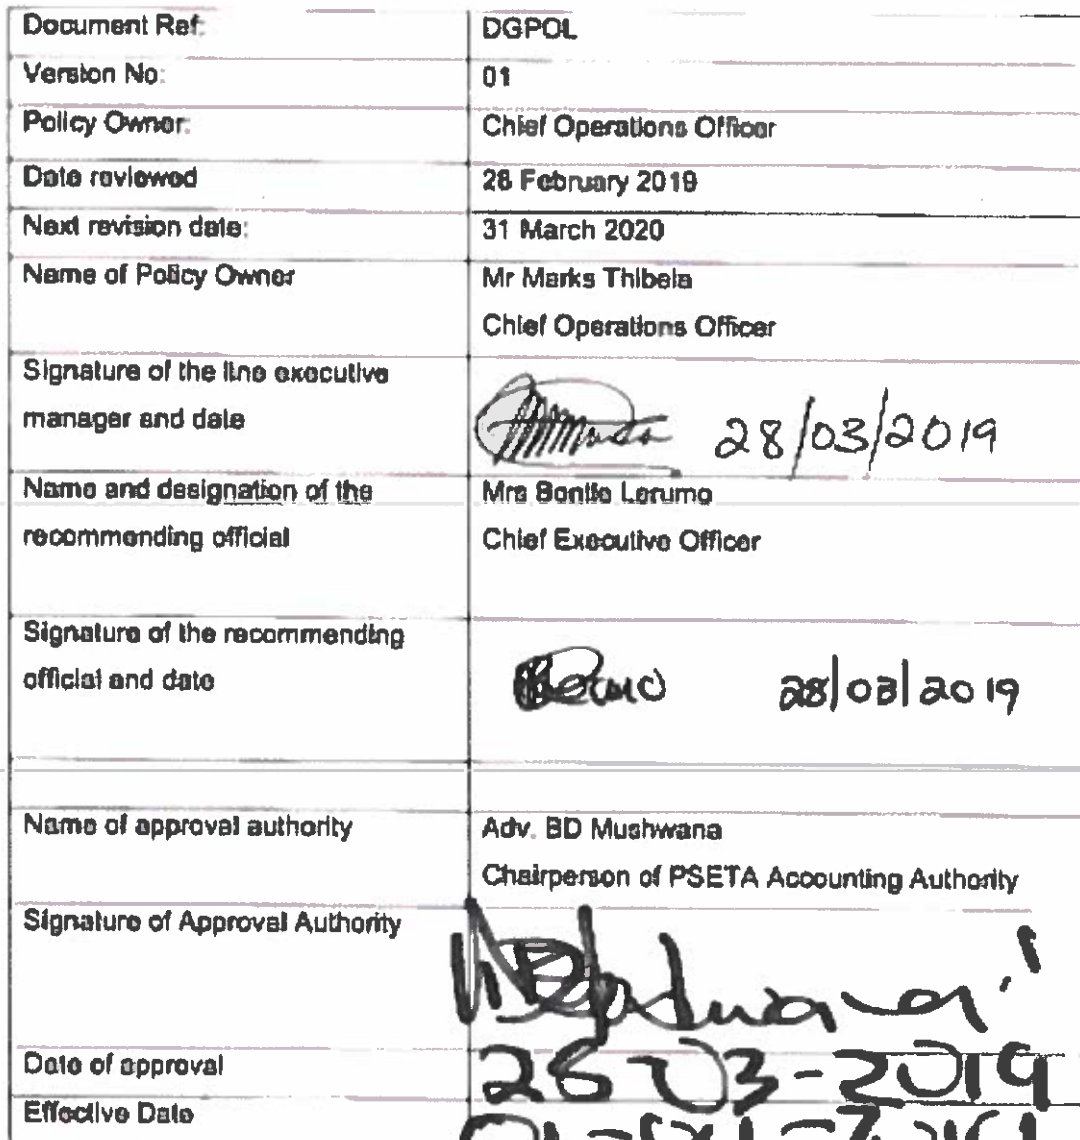 Document Ref: DGPOL
Version No: 01
Policy Owner: Chief Operations Officer
Date reviewed 28 February 2019
Next revision date: 31 March 2020
Name of Policy Owner Mr Marks Thibela
Chief Operations Officer
Signature of the line executive
manager and date 28/03/2019
Name and designation of the Mrs Bontle Lerumo
recommending official Chief Executive Officer
Signature of the recommending
official and date 28/03/2019
Name of approval authority Adv. BD Mushwana
Chairperson of PSETA Accounting Authority
Signature of Approval Authority
Date of approval 28 03-2019
Effective Date